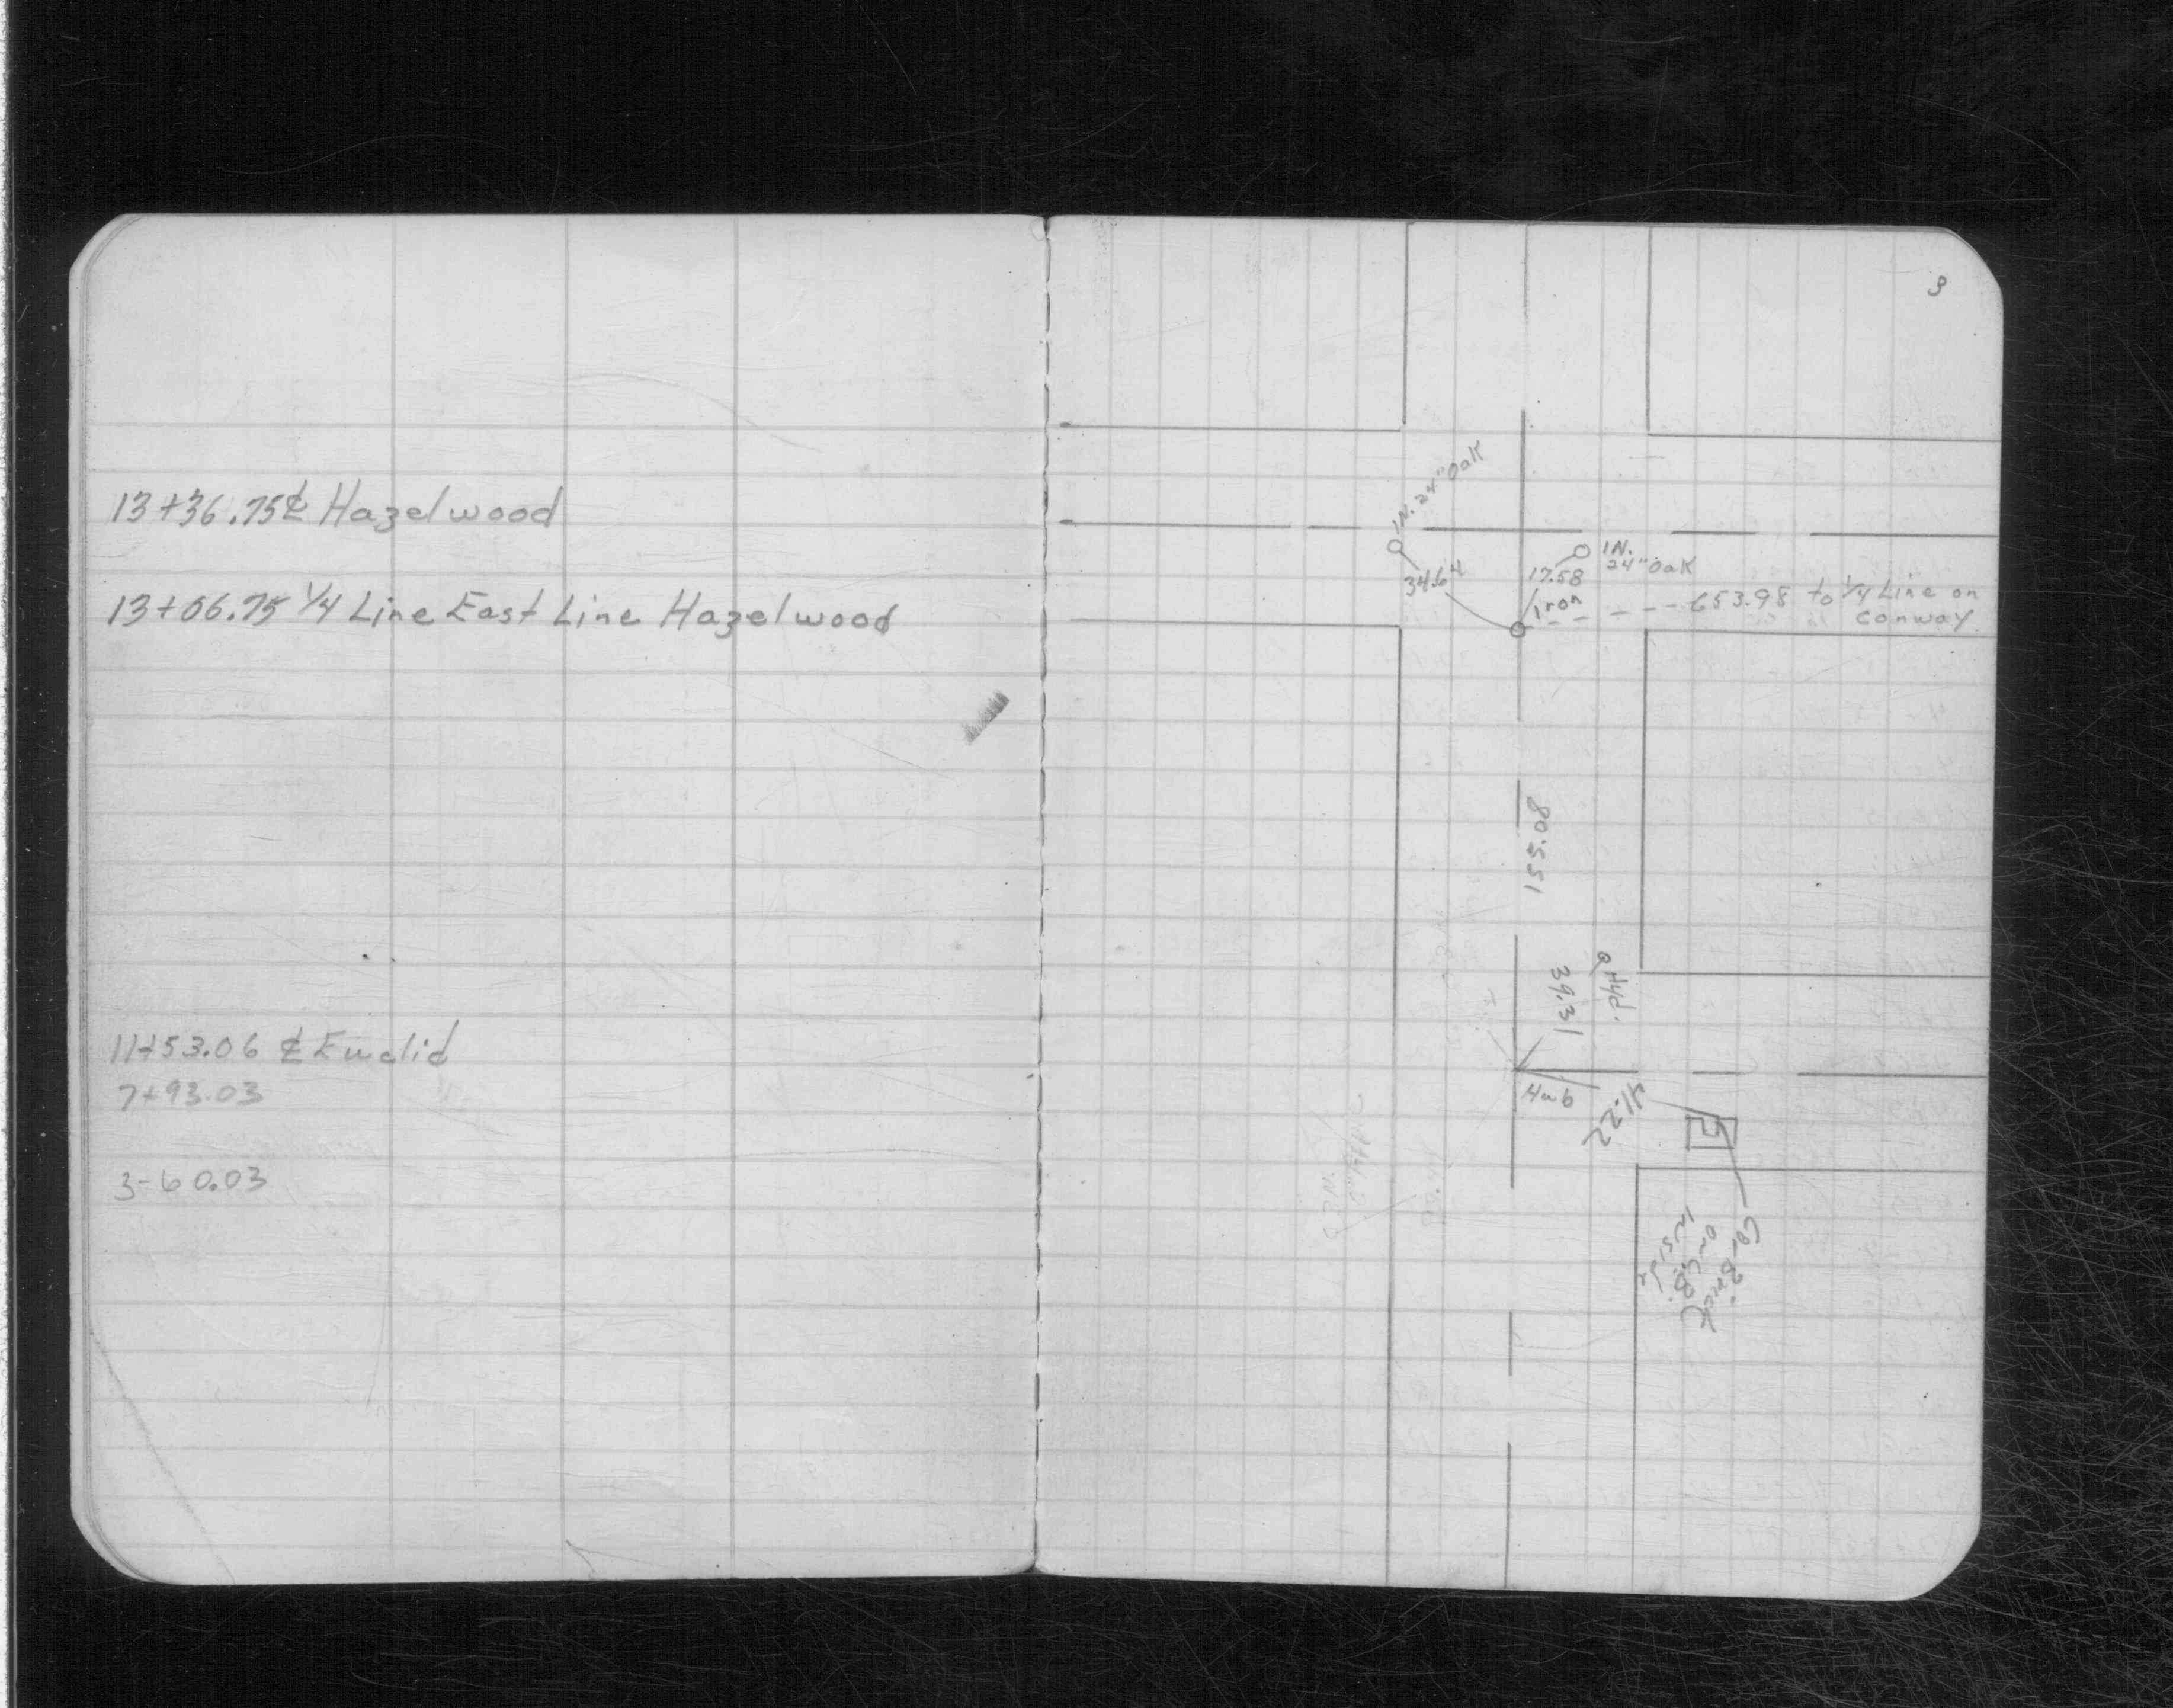 13+36.75 ℄ Hazelwood
13+06.75 1/4 Line East Line Hazelwood
11+53.06 ℄ Euclid
7+93.03
3-60.03
3
1N. 24" Oak
34.64
1N.
24" Oak
17.58
Iron
653.98 to 1/4 Line on
Conway.
155.08
Hyd.
39.31
Hub
41.22
Cor. Brick
on C.B.
Inside